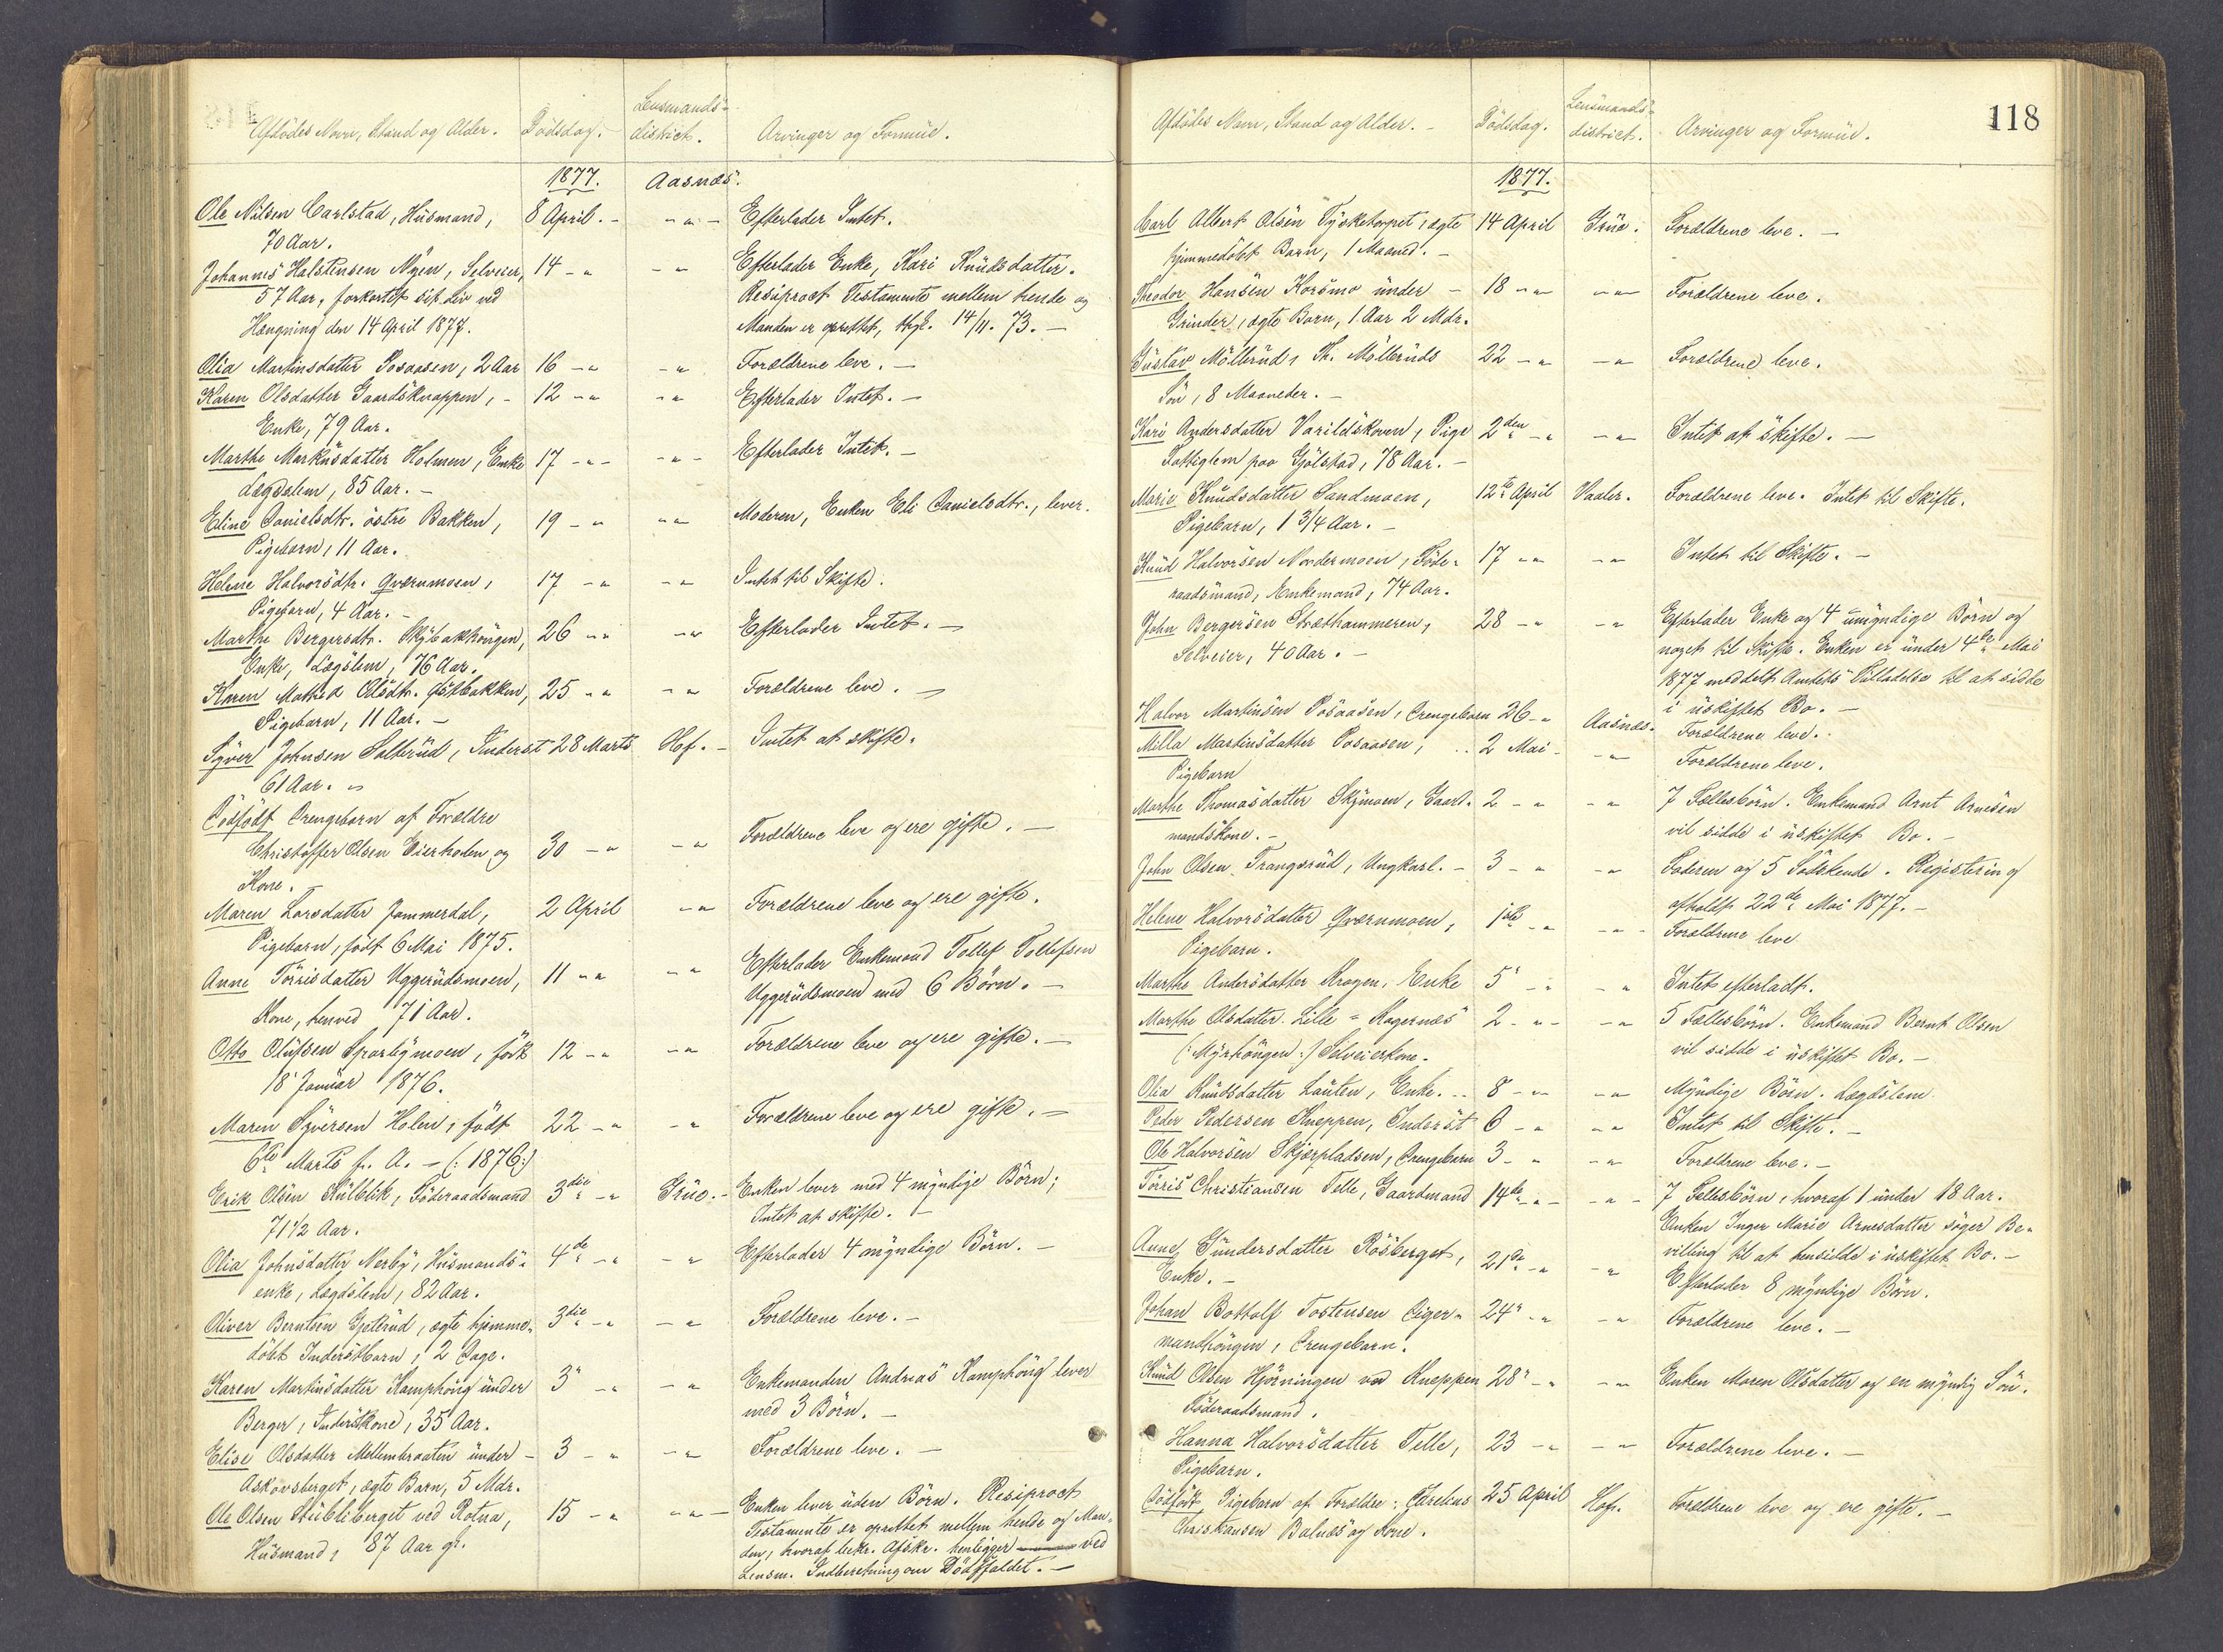 Afdödes Navn, Stand og Alder. Dödsdag. Lensmands-
district. Arvinger og Formue.
1877. Aasnæs.
Ole Nilsen Carlstad, Husmand, 8 April. - - " - Efterlader Intet.
70 Aar.
Johannes Halstensen Nyen, Selveier, 14 - " - " Efterlader Enke, Kari Knudsdatter.
57 Aar, forkortet sit Liv ved Resiproct Testamente mellem hende og
Hængning den 14 April 1877. Manden er oprettet, thgl. 14/11. 73. -
Olia Martinsdatter Posaasen, 2 Aar 16 - " - " Forældrene leve. -
Karen Olsdatter Gaardsknappen, - 12 - " - " Efterlader Intet. -
Enke, 79 Aar.
Marthe Markusdatter Holmen, Enke 17 - " - - " - Efterlader Intet. -
Lægdslem, 85 Aar. -
Eline Danielsdtr. östre Bakken, 19 - " - " Moderen, Enken Eli Danielsdtr., lever.
Pigebarn, 11 Aar.
Helene Halvorsdtr. Qværnmoen, 17 - " - " Intet til Skifte.
Pigebarn, 4 Aar. -
Marthe Bergersdtr. Skybakhöugen, 26 - " - " Efterlader Intet. -
Enke, Lægslem, 76 Aar.
Karen Mathea Olsdtr. Östbakken, 25 - " - " Forældrene leve. -
Pigebarn, 11 Aar. -
Syver Johnsen Solterud, Inderst 28 Marts Hof. - Intet at skifte.
61 Aar.
Dödfödt Drengebarn af Forældre
Christoffer Olsen Eierholen og 30 - " - " Forældrene leve og ere gifte. -
Kone.
Maren Larsdatter Jammerdal, 2 April - " Forældrene leve og ere gifte.
Pigebarn, födt 6 Mai 1875.
Anne Törrisdatter Uggerudsmoen, 11 - " - " Efterlader Enkemand Tollef Tollefsen
Kone, henved 71 Aar. Uggerudsmoen med 6 Börn. -
Otto Olufsen Sparbymoen, födt 12 - " - " Forældrene leve og ere gifte. -
18 Januar 1876.
Maren Syversen Holen, födt 22 - " - " Forældrene leve og ere gifte. -
6te Marts f. A. - (: 1876:)
Erik Olsen Kulblik, Föderaadsmand 3die - " Grue. - Enken lever med 4 myndige Börn;
71 1/2 Aar. Intet at skifte. -
Olia Johnsdatter Nerby, Husmands- 4de - " - " Efterlader 4 myndige Börn. -
enke, Lægdslem, 82 Aar.
Oliver Berntsen Gjetterud, ægte hjemme- 3die - " - " Forældrene leve. -
döbt Inderstbarn, 2 Dage.
Karen Martinsdatter Kamphöug under 3" - " - " Enkemanden Andreas Kamphöug lever
Berger, Inderstkone, 35 Aar. med 3 Börn. -
Elise Olsdatter Mellembraaten under - 3 - " - " Forældrene leve. -
Askovsberget, ægte Barn, 5 Mdr.
Ole Olsen Stubliberget ved Rotna, 15 - " - " - Enken lever uden Börn. Resiproct
Husmand, 87 Aar gl. Testamente er oprettet mellem hende og Man-
den, hvoraf bekr. Afskr. henligger ved
Lensm. Indberetning om Dödsfaldet. -
118
Afdödes Navn, Stand og Alder. - Dödsdag. Lensmands-
district. Arvinger og Formue.
1877.
Carl Albert Olsen Tysketorpet, ægte 14 April Grue. Forældrene leve. -
hjemmedöbt Barn, 1 Maaned. -
Theodor Hansen Korsmo under - 18 - " - " Forældrene leve.
Grinder, ægte Barn, 1 Aar 2 Mdr.
Gustav Möllerud, Th. Mölleruds 22 - " - " Forældrene leve.
Sön, 8 Maaneder. -
Kari Andersdatter Varildskoven, Pige 2den - " - " Intet at skifte. -
Fattiglem paa Gjölstad, 78 Aar. -
Marie Knudsdatter Sandmoen, 12te April Vaaler. Forældrene leve. Intet til Skifte.
Pigebarn, 1 3/4 Aar. -
Knud Halvorsen Nordermoen, Föde- 17 - " - " Intet til Skifte. -
raadsmand, Enkemand, 74 Aar.
John Bergersen Strethammeren, 28 - " - " Efterlader Enke og 4 umyndige Börn og
Selveier, 40 Aar. - noget til Skifte. Enken er under 4de Mai
1877 meddelt Amtets Tilladelse til at sidde
i uskiftet Bo. -
Halvor Martinsen Posaasen, Drengebarn 26 - " Aasnæs. Forældrene leve.
Milla Martinsdatter Posaasen, 2 Mai - - " Forældrene leve.
Pigebarn
Marthe Thomasdatter Skymoen, Gaard- 2 - " - " 7 Fællesbörn. Enkemand Arnt Arnesen
mandskone. - vil sidde i uskiftet Bo. -
John Olsen Trangsrud, Ungkarl. - 3 - " - " Faderen og 5 Södskende. Registering
afholdt 22de Mai 1877. -
Helene Halvorsdatter Qværnmoen, 1ste - " - " - Forældrene leve
Pigebarn.
Marthe Andersdatter Krogen, Enke 5" - " - " Intet efterladt.
Marthe Olsdatter Lille-Kagernæs 2 - " - - " 5 Fællesbörn. Enkemand Bernt Olsen
(: Myrhöugen :) Selveierkone. vil sidde i uskiftet Bo. -
Olia Knudsdatter Lauten, Enke. 8 - " - " Myndige Börn. Lægdslem.
Peder Pedersen Kneppen, Inderst 6 - " - " Intet til Skifte. -
Ole Halvorsen Skjærpladsen, Drengebarn 3 - " - " Forældrene leve. -
Törris Christiansen Telle, Gaardmand 14de - " - - " - 7 Fellesbörn, hvoraf 1 under 18 Aar.
Enken Inger Marie Arnesdatter söger Be-
villing til at hensidde i uskiftet Bo. -
Anne Gundersdatter Rösberget, 21de - " - " Efterlader 8 myndige Börn.
Enke. -
Johan Bottolf Tostensen Diger- 24" - " Forældrene leve. -
mandhöugen, Drengebarn.
Knud Olsen Hjörningen ved Kneppen 28" - " - " Enken Maren Olsdatter og en myndig Sön.
Föderaadsmand.
Hanna Halvorsdatter Telle, 23 - " - " Forældrene leve. -
Pigebarn.
Dödfödt Pigebarn af Forældre: Carelius 25 April Hof. Forældrene leve og ere gifte. -
Christiansen Balnæs og Kone.